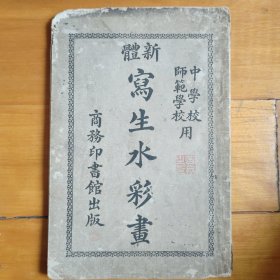 中學校
師範學校
用
新體
寫生水彩畫
商務印書館出版